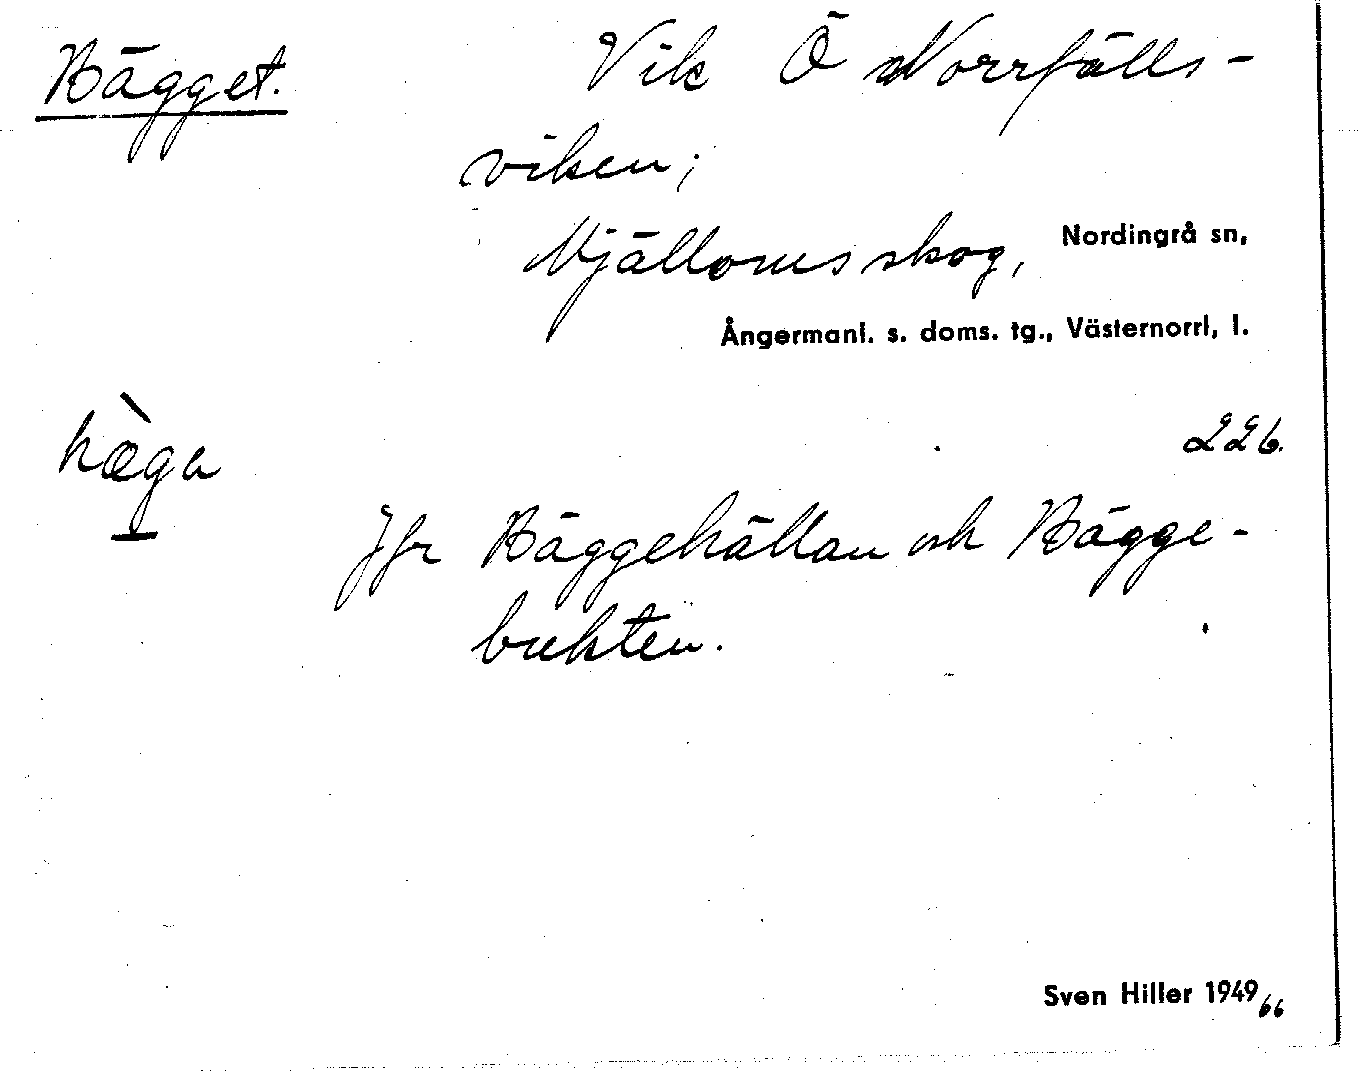 Bägget. Vik Ö Norrfälls-
viken;
Mjällomsskog, Nordingrå sn,
Ångermanl. s. doms. tg., Västernorrl, l.
226.
Jfr Bäggehällan och Bägge-
bukten.
Sven Hiller 1949 66